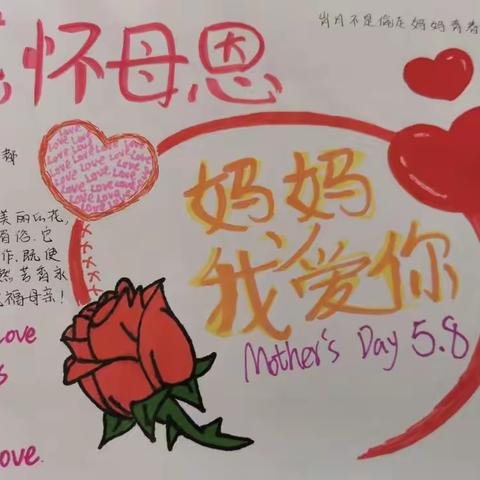 怀母恩
岁月不是偷走妈妈青春
Love Love
Love Love Love
Love Love Love
Love Love Love
Love Love
Love
都
美丽的花,
它
作,既使
然芳香永
福母亲!
妈妈
我爱你
Mother's Day 5.8
Love
s
Love.